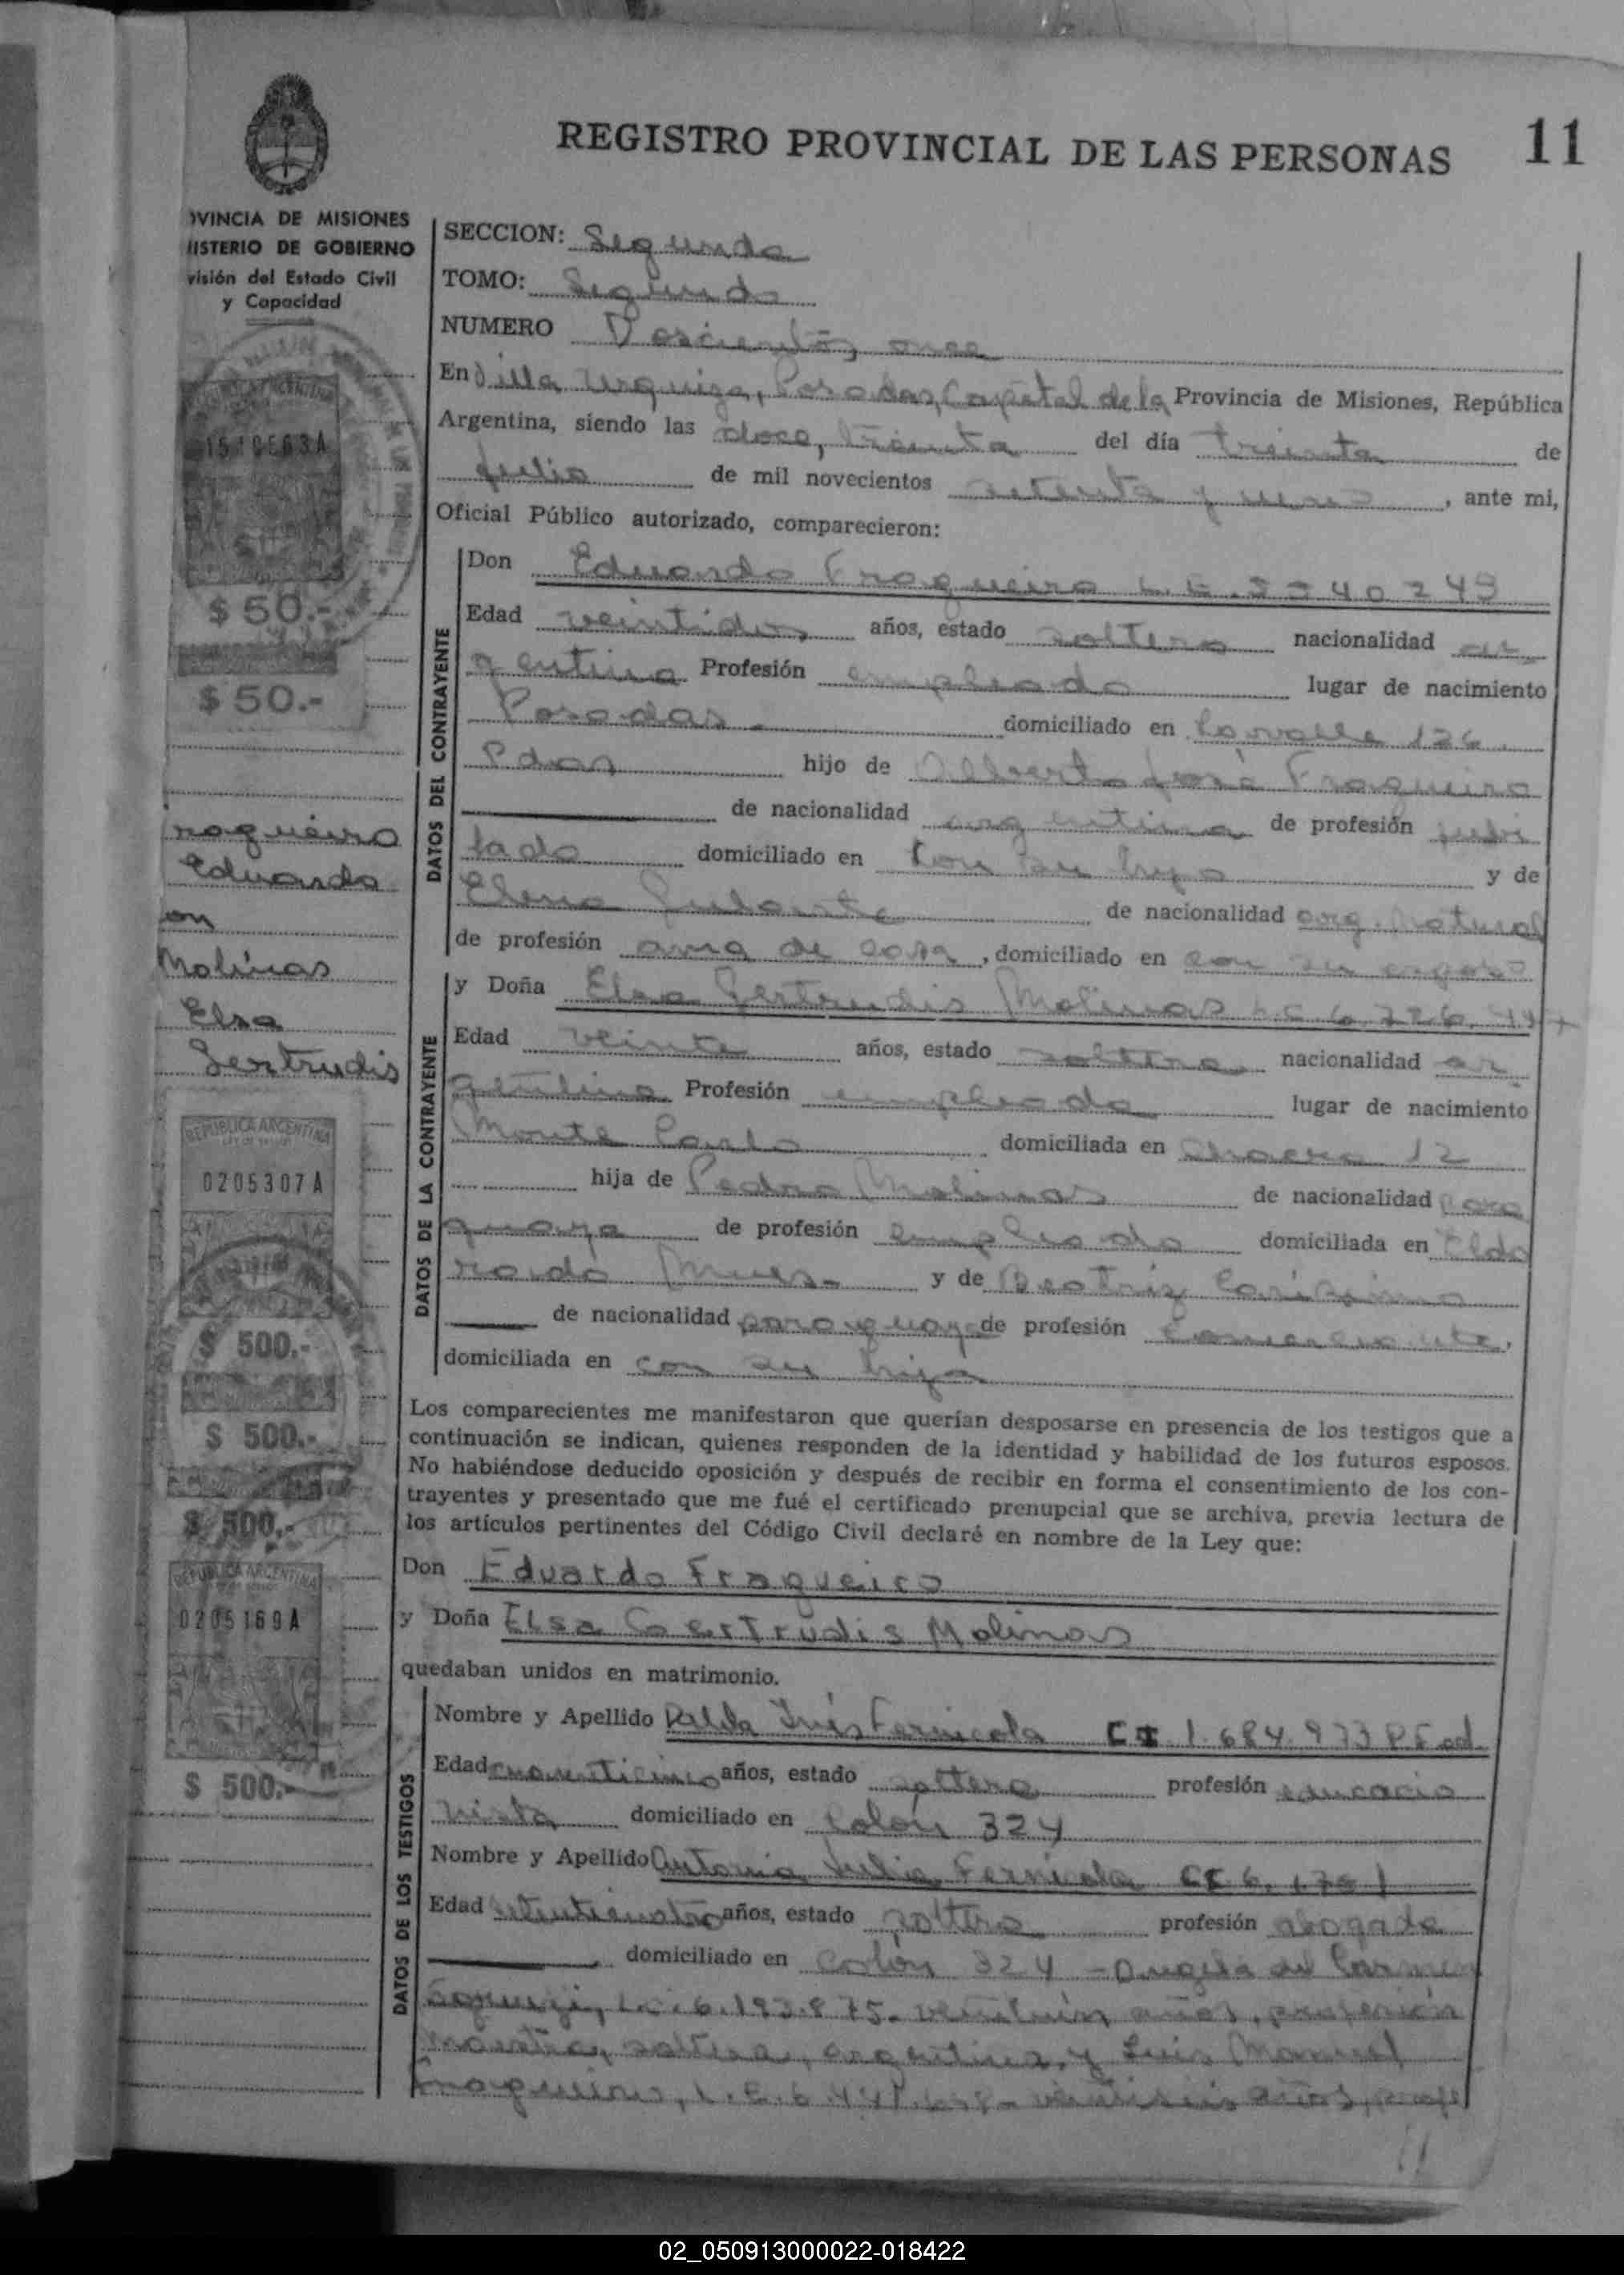 REGISTRO PROVINCIAL DE LAS PERSONAS 11
VINCIA DE MISIONES
ISTERIO DE GOBIERNO
visión del Estado Civil
y Capacidad
SECCION: Segunda
TOMO: Segundo
NUMERO Doscientos once
En Villa Urquiza, Posadas, Capital de la Provincia de Misiones, República
Argentina, siendo las doce, treinta del día treinta de
julio de mil novecientos setenta y uno, ante mi,
Oficial Público autorizado, comparecieron:
DATOS DEL CONTRAYENTE
Don Eduardo Fragueiro L.E.
Edad veintidos años, estado soltero nacionalidad ar
gentina Profesión empleado lugar de nacimiento
Posadas domiciliado en Lavalle 126
Pdas hijo de Alberto José Fragueiro
de nacionalidad argentina de profesión jubi
lado domiciliado en con su hijo y de
Elena de nacionalidad arg. natural
de profesión ama de casa, domiciliado en con su esposo
DATOS DE LA CONTRAYENTE
y Doña Elsa Gertrudis Molinas L.C.
Edad veinte años, estado soltera nacionalidad ar
gentina Profesión empleada lugar de nacimiento
Monte Carlo domiciliada en Chacra 12
hija de Pedro Molinas de nacionalidad para
guaya de profesión empleado domiciliada en Eldo
rado Mnes. y de Beatriz
de nacionalidad paraguaya de profesión comerciante,
domiciliada en con su hija
Los comparecientes me manifestaron que querían desposarse en presencia de los testigos que a
continuación se indican, quienes responden de la identidad y habilidad de los futuros esposos.
No habiéndose deducido oposición y después de recibir en forma el consentimiento de los con-
trayentes y presentado que me fué el certificado prenupcial que se archiva, previa lectura de
los artículos pertinentes del Código Civil declaré en nombre de la Ley que:
Don Eduardo Fragueiro
y Doña Elsa Gertrudis Molinas
quedaban unidos en matrimonio.
DATOS DE LOS TESTIGOS
Nombre y Apellido Inés Fernicola CI 1.684.973 P.Fed.
Edad cuarenticinco años, estado soltera profesión educacio
nista domiciliado en Colón 324
Nombre y Apellido Antonia Julia Fernicola CI 6.
Edad años, estado soltera profesión abogada
domiciliado en Colón 324 - Angela del Carmen
L.C. 6.193.875. veintiún años, profesión
maestra, soltera, argentina, y Luis Manuel
Fragueiro, L.E. veintiseis años, profe
1510563A
$ 50.-
$ 50.-
Fragueiro
Eduardo
con
Molinas
Elsa
Gertrudis
REPUBLICA ARGENTINA
0205307 A
$ 500.-
$ 500.-
$ 500.-
REPUBLICA ARGENTINA
0205169 A
$ 500.-
11
02_050913000022-018422